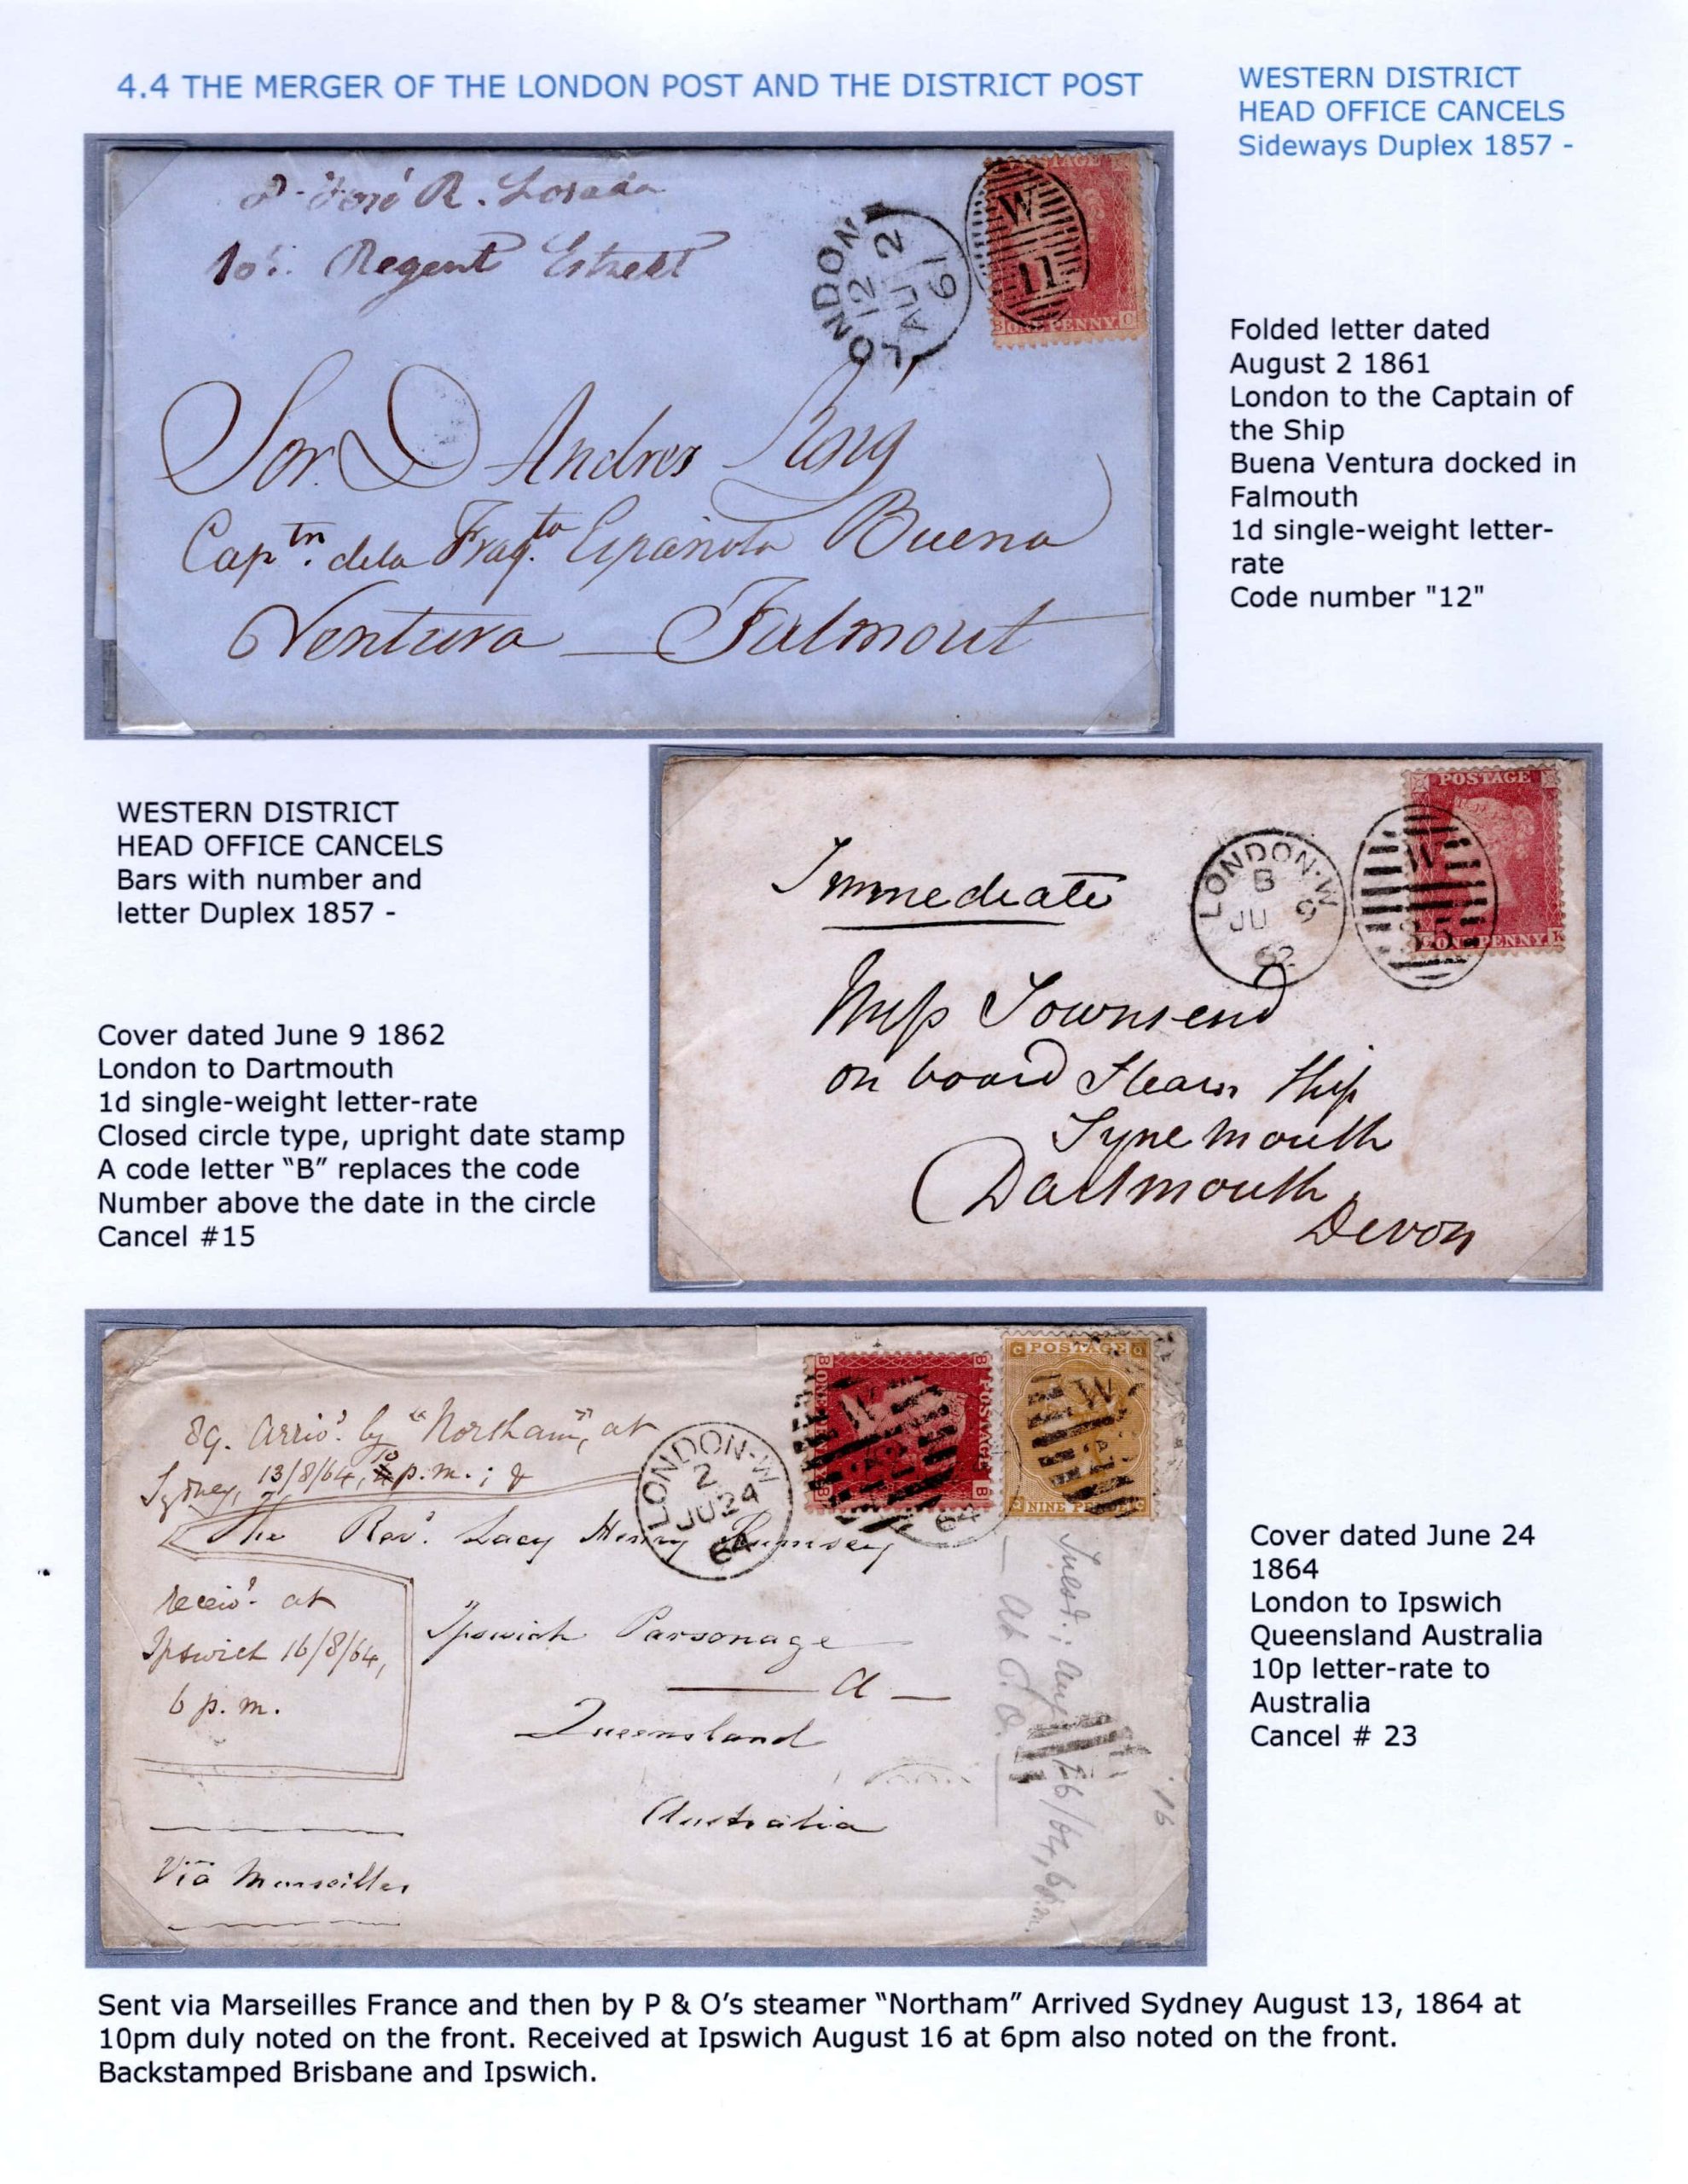 4.4 THE MERGER OF THE LONDON POST AND THE DISTRICT POST
WESTERN DISTRICT
HEAD OFFICE CANCELS
Sideways Duplex 1857 -
José R. Losada
Regent Estreet
LONDON
12
AU 2
61
W
11
ONE PENNY
Folded letter dated
August 2 1861
London to the Captain of
the Ship
Buena Ventura docked in
Falmouth
1d single-weight letter-
rate
Code number "12"
Sor. D Andres Roig
Captn. dela Fragta Española Buena
Ventura — Falmout
WESTERN DISTRICT
HEAD OFFICE CANCELS
Bars with number and
letter Duplex 1857 -
Cover dated June 9 1862
London to Dartmouth
1d single-weight letter-rate
Closed circle type, upright date stamp
A code letter “B” replaces the code
Number above the date in the circle
Cancel #15
POSTAGE
ONE PENNY
LONDON·W
B
JU 9
62
W
Immediate
Miss Townsend
on board Steam Ship
Tynemouth
Dartmouth
Devon
89. Arrivd. by "Northam", at
Sydney, 13/8/64, 10 p.m.; &
The Revd. Lacy Henry Rumsey
LONDON-W
2
JU 24
64
W
POSTAGE
W
NINE PENCE
receivd. at
Ipswich 16/8/64,
6 p.m.
Ipswich Parsonage
Queensland
Australia
Via Marseilles
Cover dated June 24
1864
London to Ipswich
Queensland Australia
10p letter-rate to
Australia
Cancel # 23
Sent via Marseilles France and then by P & O’s steamer “Northam” Arrived Sydney August 13, 1864 at
10pm duly noted on the front. Received at Ipswich August 16 at 6pm also noted on the front.
Backstamped Brisbane and Ipswich.